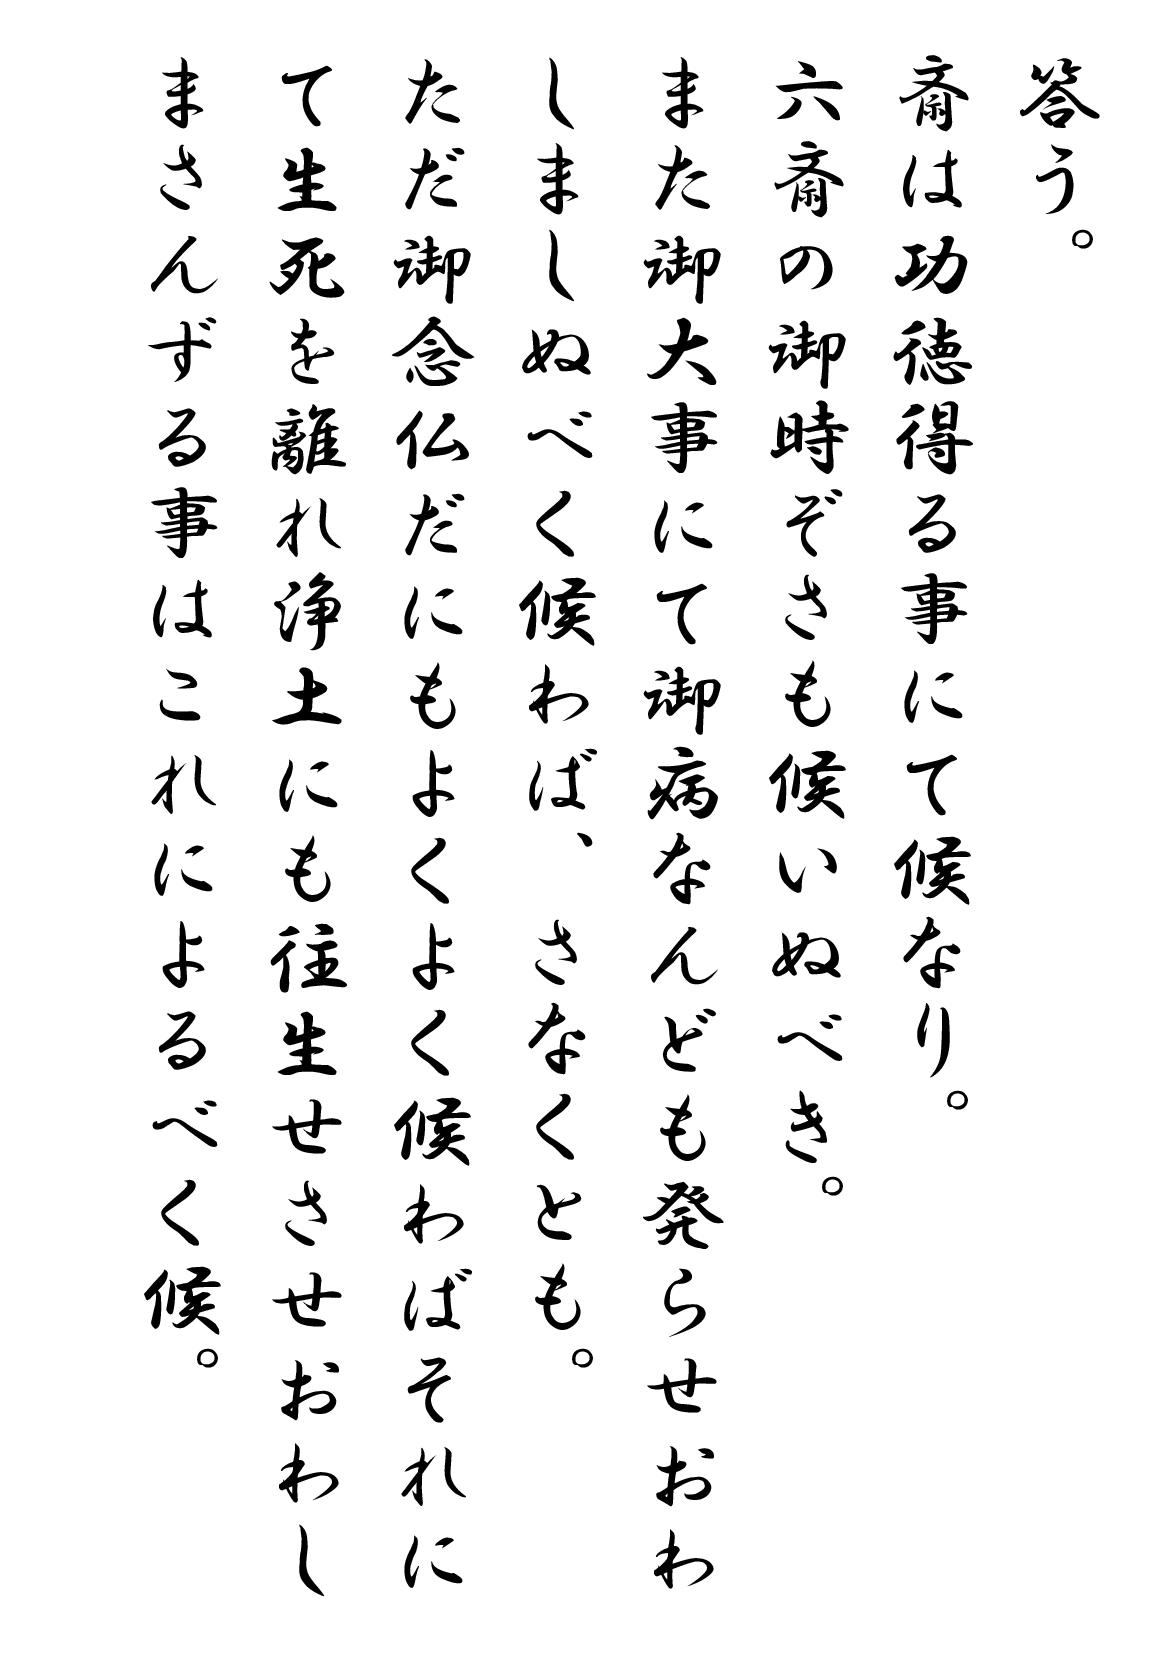 答う。
斎は功徳得る事にて候なり。
六斎の御時ぞさも候いぬべき。
また御大事にて御病なんども発らせおわ
しましぬべく候わば、さなくとも。
ただ御念仏だにもよくよく候わばそれに
て生死を離れ浄土にも往生せさせおわし
まさんずる事はこれによるべく候。